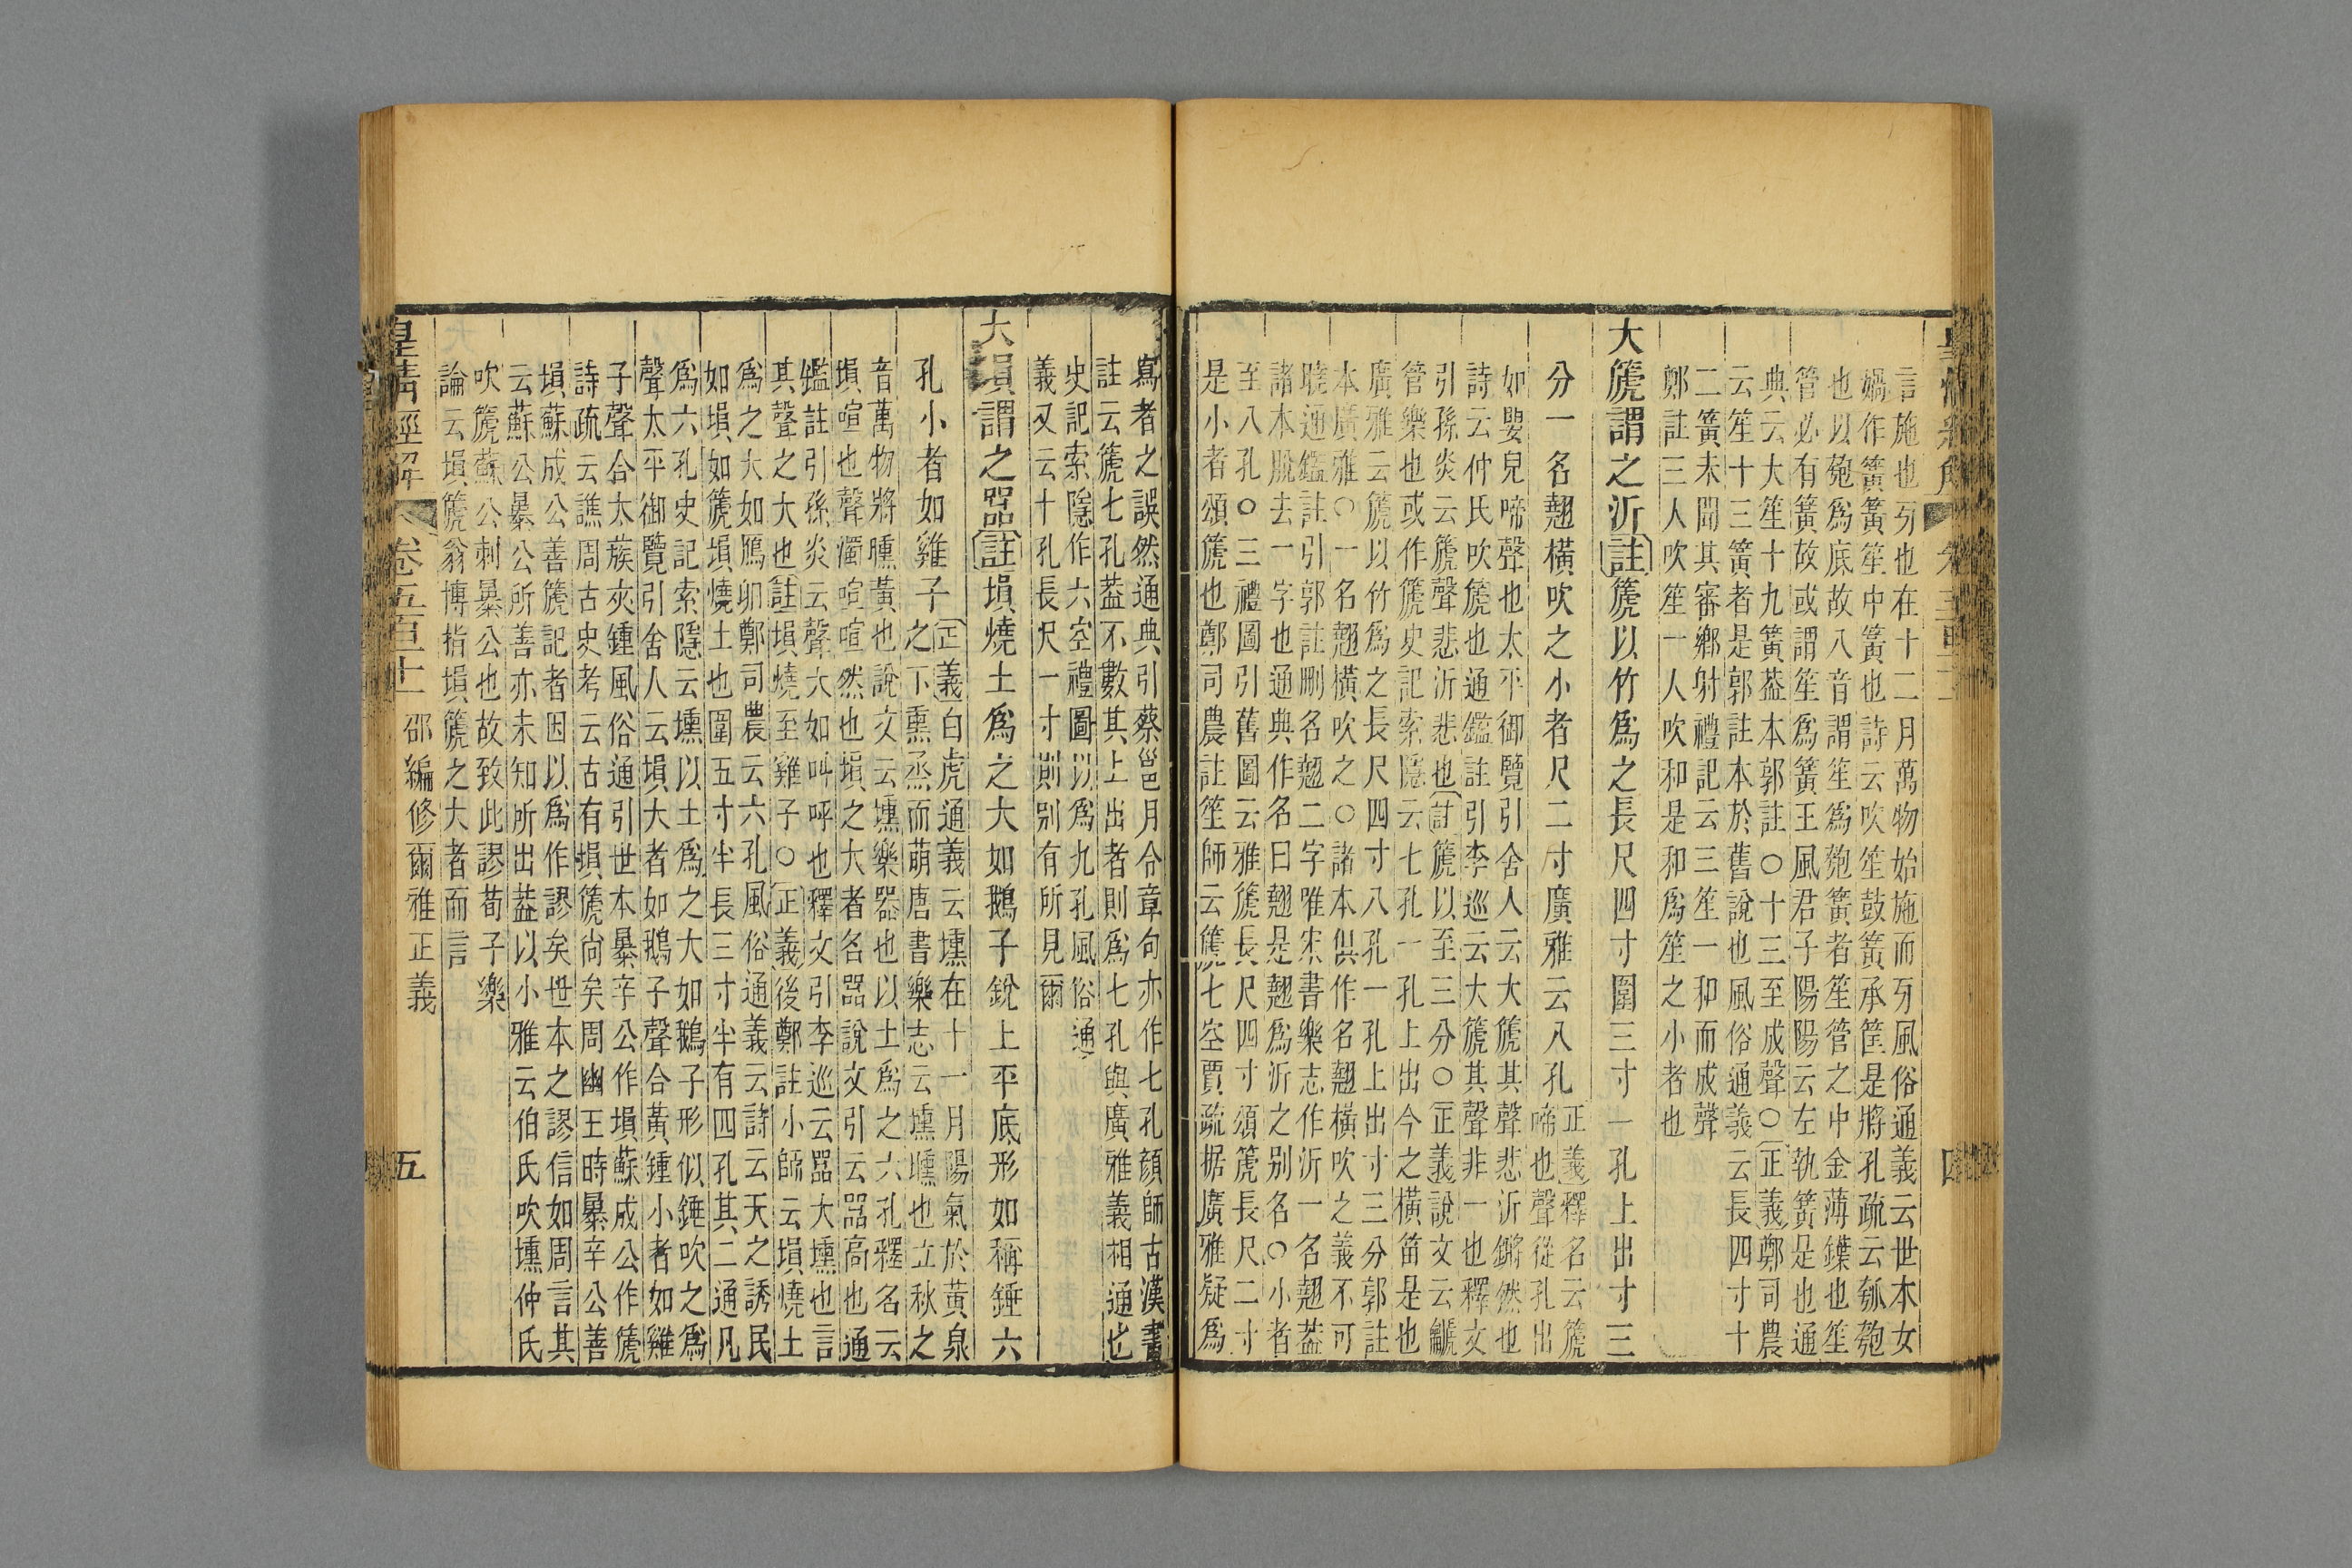 言施也牙也在十二月萬物始施而牙風俗通義云世本女
媧作簧簧笙中簧也詩云吹笙鼓簧承筐是將孔疏云瓠匏
也以匏爲底故八音謂笙爲匏簧者笙管之中金薄鐷也笙
管必有簧故或謂笙爲簧王風君子陽陽云左執簧是也通
典云大笙十九簧葢本郭註○十三至成聲○正義鄭司農
云笙十三簧者是郭註本於舊說也風俗通義云長四寸十
二簧未聞其審鄉射禮記云三笙一和而成聲
鄭註三人吹笙一人吹和是和爲笙之小者也
大篪謂之沂註篪以竹爲之長尺四寸圍三寸一孔上出寸三
分一名翹橫吹之小者尺二寸廣雅云八孔
正義釋名云篪
啼也聲從孔出
如嬰兒啼聲也太平御覽引舍人云大篪其聲悲沂鏘然也
詩云仲氏吹篪也通鑑註引李巡云大篪其聲非一也釋文
引孫炎云篪聲悲沂悲也註篪以至三分○正義說文云䶵
管樂也或作篪史記索隱云七孔一孔上出今之橫笛是也
廣雅云篪以竹爲之長尺四寸八孔一孔上出寸三分郭註
本廣雅○一名翹橫吹之○諸本俱作名翹橫吹之義不可
曉通鑑註引郭註刪名翹二字唯宋書樂志作沂一名翹葢
諸本脫去一字也通典作名曰翹是翹爲沂之别名○小者
至八孔○三禮圖引舊圖云雅篪長尺四寸頌篪長尺二寸
是小者頌篪也鄭司農註笙師云篪七空賈疏据廣雅疑爲
寫者之誤然通典引蔡邕月令章句亦作七孔顏師古漢書
註云篪七孔葢不數其上出者則爲七孔與廣雅義相通也
史記索隱作六空禮圖以爲九孔風俗通
義又云十孔長尺一寸則别有所見爾
大塤謂之嘂註塤燒土爲之大如鵝子銳上平底形如稱錘六
孔小者如雞子
正義白虎通義云壎在十一月陽氣於黃泉
之下熏烝而萌唐書樂志云壎曛也立秋之
音萬物將曛黃也說文云壎樂器也以土爲之六孔釋名云
塤喧也聲濁喧喧然也塤之大者名嘂說文引云嘂高也通
鑑註引孫炎云聲大如叫呼也釋文引李巡云嘂大壎也言
其聲之大也註塤燒至雞子○正義後鄭註小師云塤燒土
爲之大如鴈卵鄭司農云六孔風俗通義云詩云天之誘民
如塤如篪塤燒土也圍五寸半長三寸半有四孔其二通凡
爲六孔史記索隱云壎以土爲之大如鵝子形似錘吹之爲
聲太平御覽引舍人云塤大者如鵝子聲合黃鍾小者如雞
子聲合太蔟夾鍾風俗通引世本暴辛公作塤蘇成公作篪
詩疏云譙周古史考云古有塤篪尚矣周幽王時暴辛公善
塤蘇成公善篪記者因以爲作謬矣世本之謬信如周言其
云蘇公暴公所善亦未知所出葢以小雅云伯氏吹壎仲氏
吹篪蘇公刺暴公也故致此謬荀子樂
論云塤篪翁博指塤篪之大者而言
皇清經解 卷五百十一 邵編修爾雅正義 五